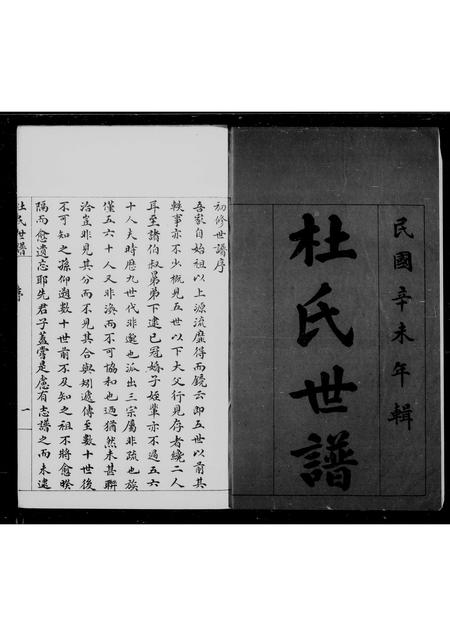 民國辛未年輯
杜氏世譜
初修世譜序
吾家自始祖以上源流靡得而鏡云即五世以前其
軼事亦不少概見五世以下大父行見存者纔二人
耳至諸伯叔羣弟下逮已冠婚子姪輩亦不過五六
十人夫時歷九世代非邈也派出三宗屬非疏也族
僅五六十人又非渙而不可協和也迺猶然未甚聯
洽豈非見其分而不見其合與矧遞傳至數十世後
不可知之孫仰遡數十世前不及知之祖不將愈暌
隔而愈遺忘耶先君子蓋嘗是慮有志譜之而未逮
杜氏世譜
序
一